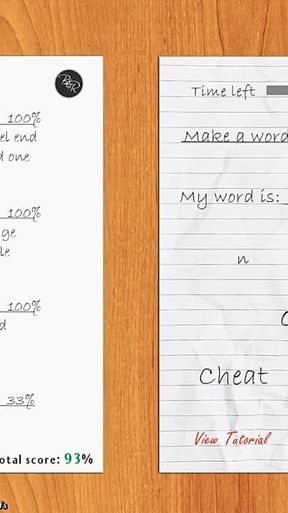 B&R
100%
el end
d one
100%
ge
le
100%
d
33%
otal score: 93%
Time left
Make a word
My word is:
n
Cheat
View Tutorial